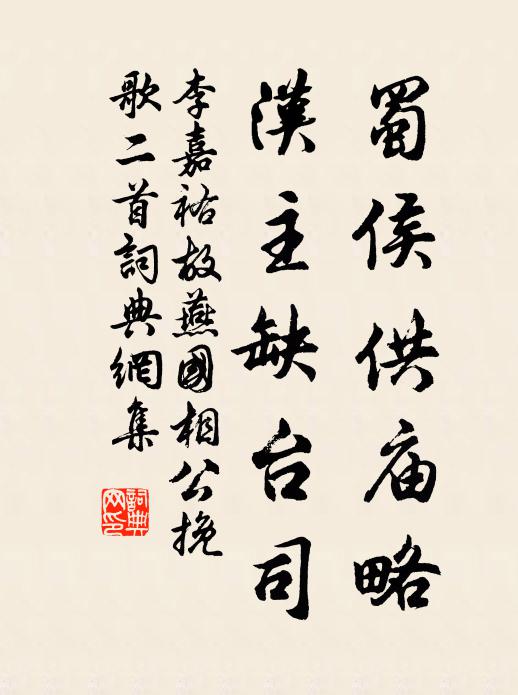 蜀侯供庙略
漢主缺台司
李嘉祐故燕國相公挽
歌二首詞典網集
詞典
网印